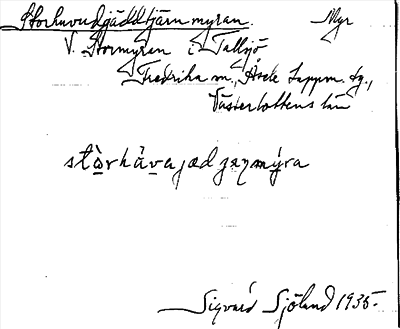 Storhuvudgäddtjärnmyran. Myr
V. Stormyren i Tallsjö
Fredrika sn., Åsele Lappm. tg.,
Västerbottens län
stòrhåvajædjæṇmýra
Sigvard Sjöland 1935.